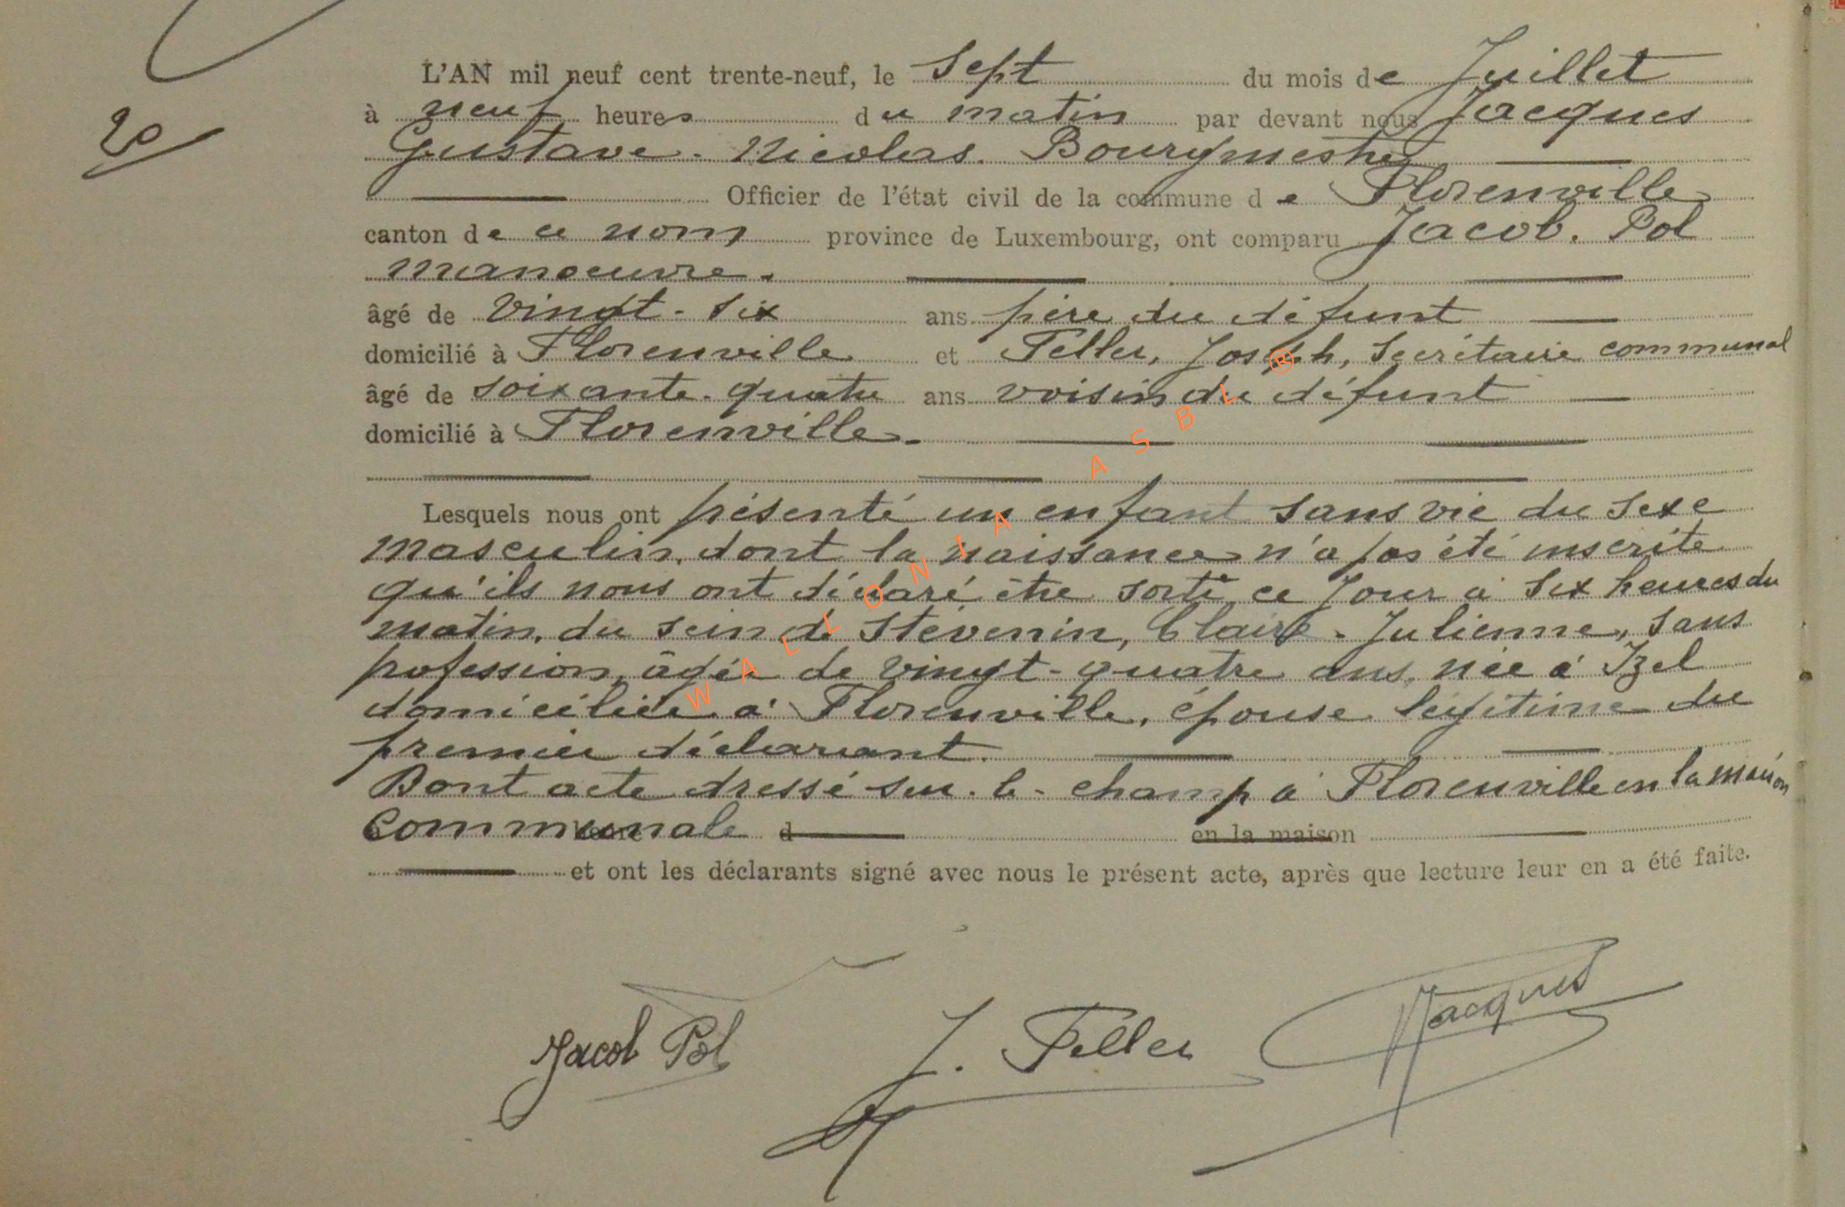 L'AN mil neuf cent trente-neuf, le Sept du mois de Juillet
20
à neuf heures du matin par devant nous Jacques
Gustave-Nicolas. Bourgmestre
Officier de l'état civil de la commune de Florenville
canton de ce nom province de Luxembourg, ont comparu Jacob. Pol
manoeuvre.
âgé de vingt-six ans père du défunt
domicilié à Florenville et Feller, Joseph, Secrétaire communal
âgé de soixante-quatre ans voisin du défunt
domicilié à Florenville.
Lesquels nous ont présenté un enfant sans vie du sexe
masculin, dont la naissance n'a pas été inscrite
qu'ils nous ont déclaré être sorti ce jour à six heures du
matin, du sein de Stevenin, Claire-Julienne, sans
profession, âgée de vingt-quatre ans, née à Izel
domiciliée à Florenville, épouse légitime du
premier déclarant.
Dont acte dressé sur-le-champ à Florenville en la maison
communale d en la maison
et ont les déclarants signé avec nous le présent acte, après que lecture leur en a été faite.
Jacob Pol J. Feller Jacques
WALLONIA ASBL ®